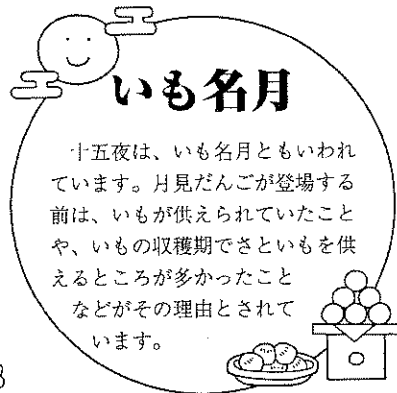 いも名月
十五夜は、いも名月ともいわれ
ています。月見だんごが登場する
前は、いもが供えられていたこと
や、いもの収穫期でさといもを供
えるところが多かったこと
などがその理由とされて
います。